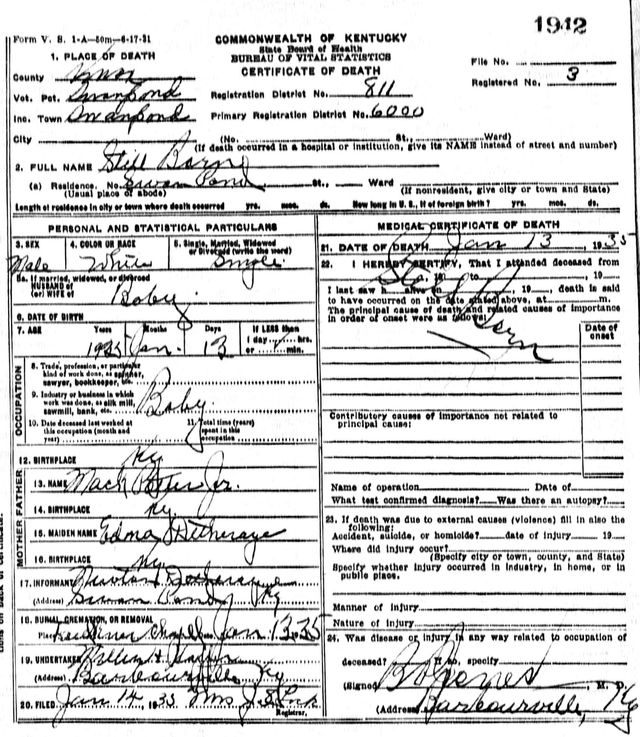 1942
Form V. S. 1-A—50m—6-17-31
COMMONWEALTH OF KENTUCKY
State Board of Health
BUREAU OF VITAL STATISTICS
CERTIFICATE OF DEATH
File No.
Registered No. 3
1. PLACE OF DEATH
County Knox
Vot. Pct. Swanpond
Inc. Town Swanpond
Registration District No. 811
Primary Registration District No. 6000
City (No. St., Ward)
(If death occurred in a hospital or institution, give its NAME instead of street and number)
2. FULL NAME Still Born
(a) Residence. No. Swan Pond St., Ward
(Usual place of abode) (If nonresident, give city or town and State)
Length of residence in city or town where death occurred yrs. mos. ds. How long in U. S., if of foreign birth? yrs. mos. ds.
PERSONAL AND STATISTICAL PARTICULARS
3. SEX 4. COLOR OR RACE 5. Single, Married, Widowed or Divorced (write the word)
Male White Single
5a. If married, widowed, or divorced
HUSBAND of
(or) WIFE of
Baby
6. DATE OF BIRTH
7. AGE Years Months Days If LESS than 1 day, hrs. or min.
1935 Jan. 13
OCCUPATION
8. Trade, profession, or particular kind of work done, as spinner, sawyer, bookkeeper, etc.
9. Industry or business in which work was done, as silk mill, sawmill, bank, etc.
Baby
10. Date deceased last worked at this occupation (month and year)
11. Total time (years) spent in this occupation
12. BIRTHPLACE Ky.
FATHER
13. NAME Mack Jr.
14. BIRTHPLACE Ky.
MOTHER
15. MAIDEN NAME Edna
16. BIRTHPLACE Ky
17. INFORMANT Newton
(Address) Swan Pond, Ky
18. BURIAL, CREMATION, OR REMOVAL
Place Chapel Date Jan 13, 35
19. UNDERTAKER
(Address) Barbourville Ky
20. FILED Jan 14, 1935 Mrs J.
Registrar.
MEDICAL CERTIFICATE OF DEATH
21. DATE OF DEATH Jan 13, 1935
22. I HEREBY CERTIFY, That I attended deceased from
, 19 to , 19
I last saw h alive on , 19 , death is said
to have occurred on the date stated above, at m.
The principal cause of death and related causes of importance in order of onset were as follows:
Still Born
Date of onset
Contributory causes of importance not related to principal cause:
Name of operation Date of
What test confirmed diagnosis? Was there an autopsy?
23. If death was due to external causes (violence) fill in also the following:
Accident, suicide, or homicide? date of injury 19
Where did injury occur?
(Specify city or town, county, and State)
Specify whether injury occurred in industry, in home, or in public place.
Manner of injury
Nature of injury
24. Was disease or injury in any way related to occupation of
deceased? If so, specify
(Signed) M. D.
(Address) Barbourville, Ky